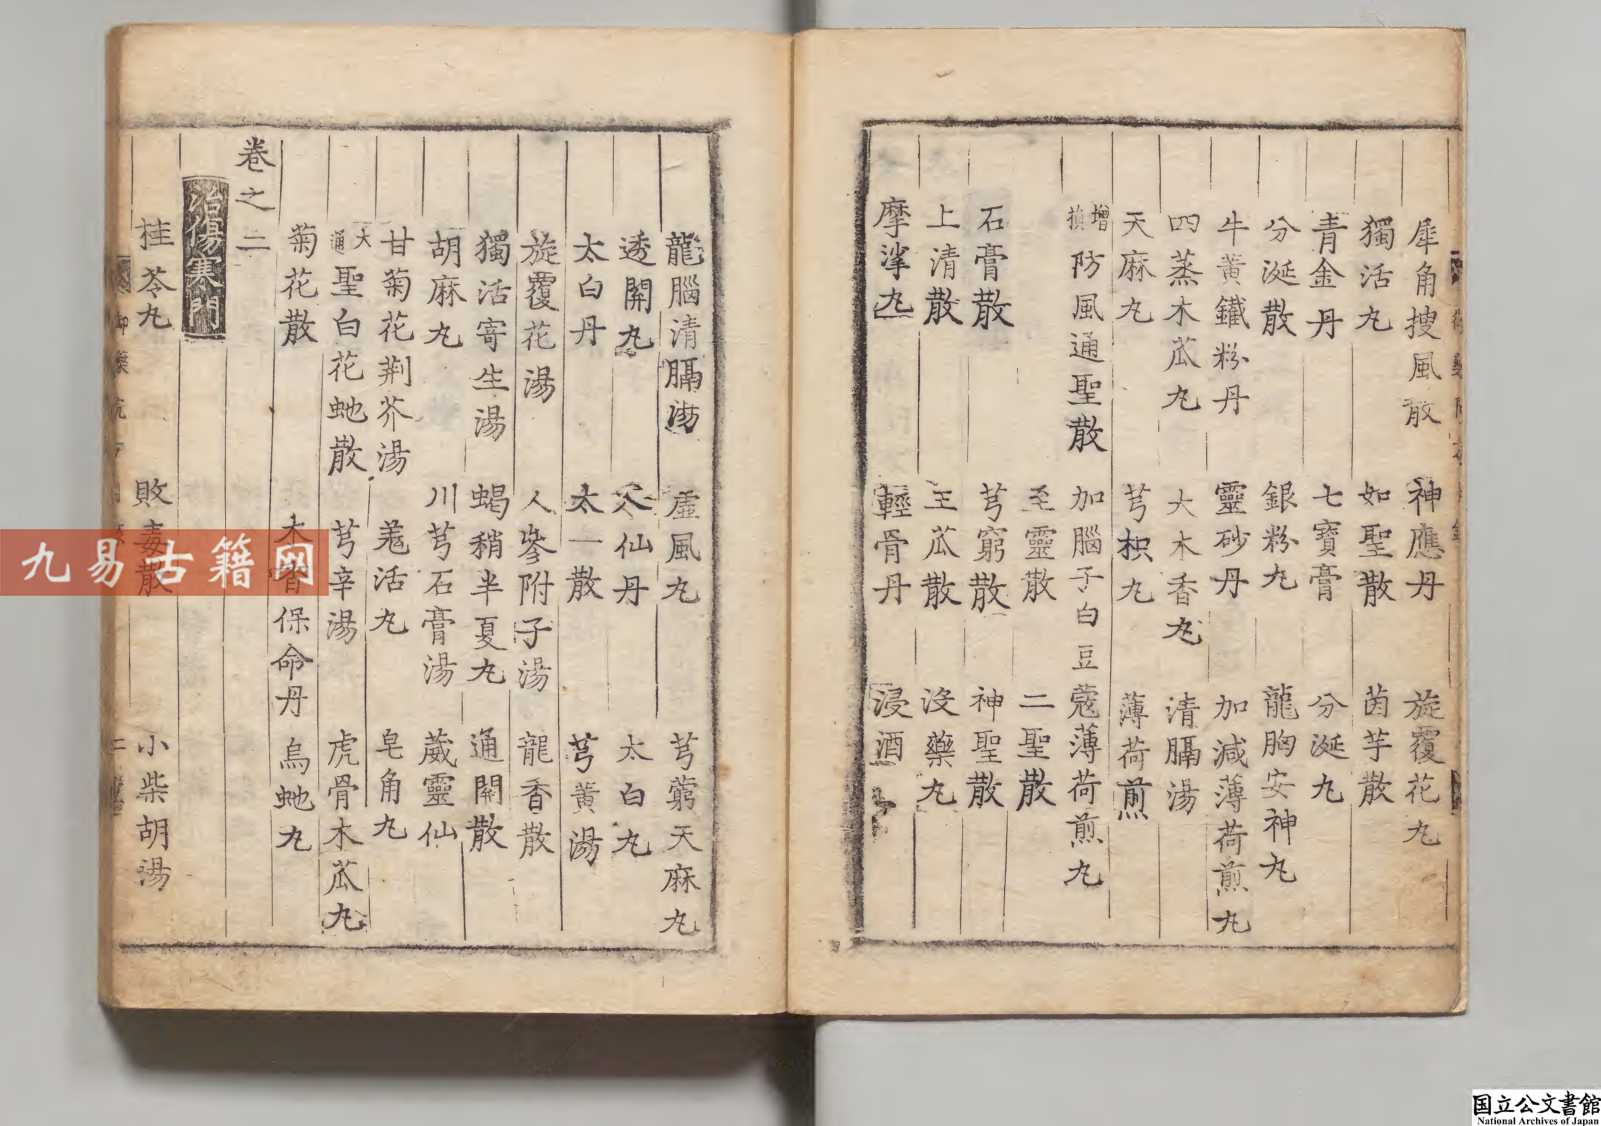 犀角搜風散 神應丹 旋覆花丸
獨活丸 如聖散 茵芋散
青金丹 七寶膏 分涎丸
分涎散 銀粉丸 龍胸安神丸
牛黃鐵粉丹 靈砂丹 加減薄荷煎丸
四蒸木瓜丸 大木香丸 清膈湯
天麻丸 芎枳丸 薄荷煎
增損防風通聖散 加腦子白豆蔻薄荷煎丸
至靈散 二聖散
石膏散 芎窮散 神聖散
上清散 王瓜散 沒藥丸
摩挲丸 輕骨丹 浸酒
龍腦清膈湯 虛風丸 芎藭天麻丸
透關丸 仙丹 太白丸
太白丹 太一散 芎黃湯
旋覆花湯 人參附子湯 龍香散
獨活寄生湯 蝎稍半夏丸 通關散
胡麻丸 川芎石膏湯 葳靈仙
甘菊花荆芥湯 羗活丸 皂角丸
大通聖白花蛇散 芎辛湯 虎骨木瓜丸
菊花散 木香保命丹 烏蛇丸
卷之二
治傷寒門
桂苓丸 敗毒散 小柴胡湯
九易古籍网
国立公文書館
National Archives of Japan